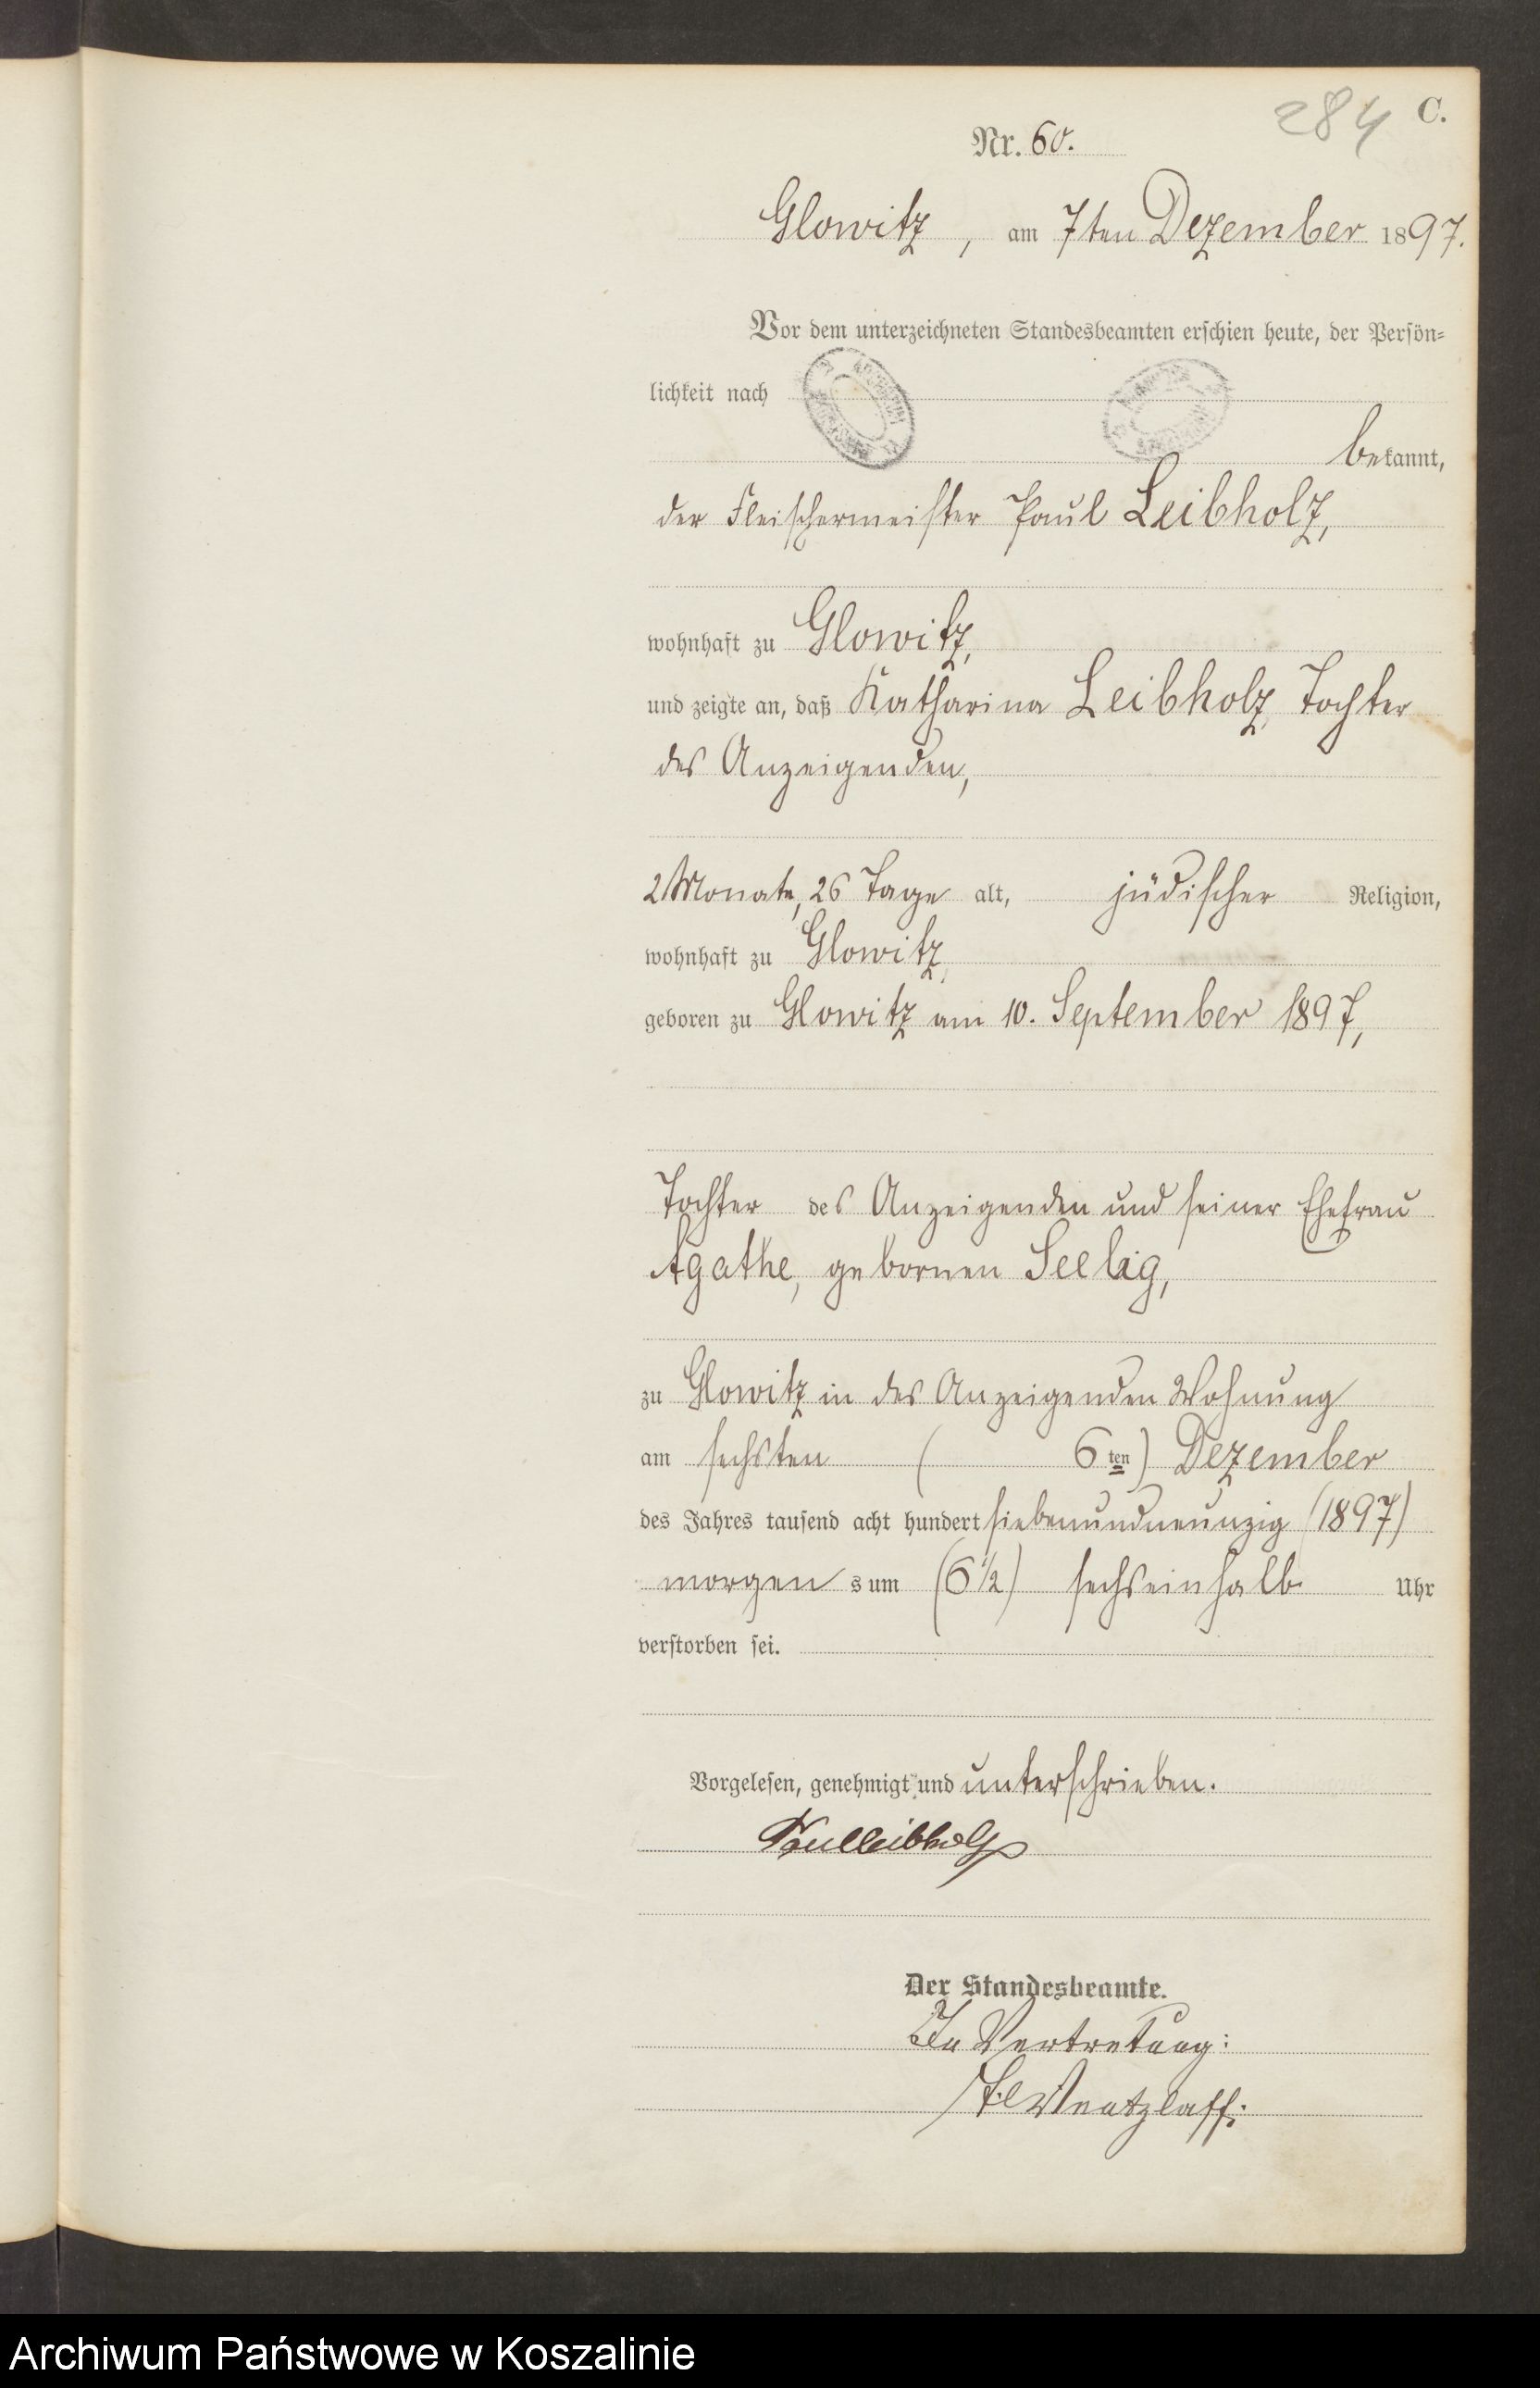 284 C.
Nr. 60.
Glowitz, am 7ten Dezember 1897.
Vor dem unterzeichneten Standesbeamten erschien heute, der Persön-
lichkeit nach
bekannt,
der Fleischermeister Paul Leibholz,
wohnhaft zu Glowitz,
und zeigte an, daß Katharina Leibholz, Tochter
des Anzeigenden,
2 Monate, 26 Tage alt, jüdischer Religion,
wohnhaft zu Glowitz,
geboren zu Glowitz am 10. September 1897,
Tochter des Anzeigenden und seiner Ehefrau
Agathe, gebornen Seelig,
zu Glowitz in des Anzeigenden Wohnung
am sechsten ( 6 ten) Dezember
des Jahres tausend acht hundert siebenundneunzig (1897)
morgens um (6 1/2) sechseinhalb Uhr
verstorben sei.
Vorgelesen, genehmigt und unterschrieben.
Paul Leibholz
Der Standesbeamte.
In Vertretung:
Wentzlaff.
Archiwum Państwowe w Koszalinie